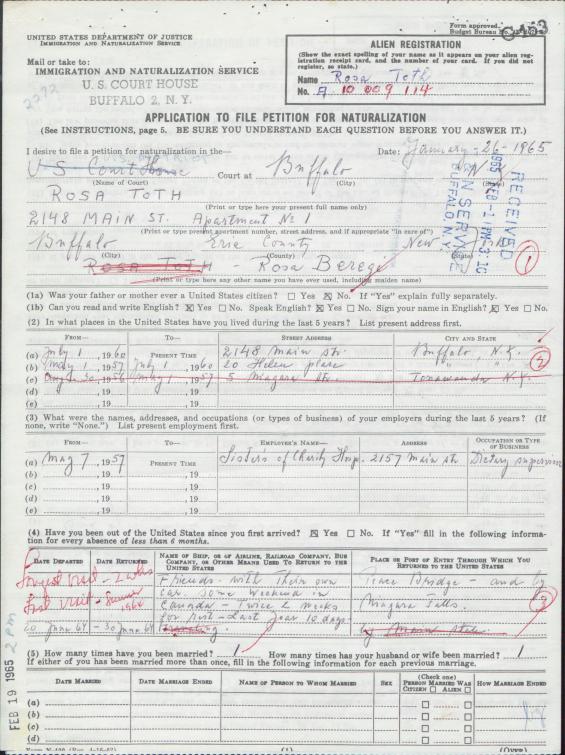 Form approved.
Budget Bureau No.
G-153
UNITED STATES DEPARTMENT OF JUSTICE
IMMIGRATION AND NATURALIZATION SERVICE
Mail or take to:
IMMIGRATION AND NATURALIZATION SERVICE
U. S. COURT HOUSE
BUFFALO 2, N. Y.
ALIEN REGISTRATION
(Show the exact spelling of your name as it appears on your alien reg-
istration receipt card, and the number of your card. If you did not
register, so state.)
Name Rosa Toth
No. A 10 009 114
APPLICATION TO FILE PETITION FOR NATURALIZATION
(See INSTRUCTIONS, page 5. BE SURE YOU UNDERSTAND EACH QUESTION BEFORE YOU ANSWER IT.)
I desire to file a petition for naturalization in the—
Date: January-26-1965
U S Court House Court at Buffalo N.Y.
(Name of Court) (City) (State)
ROSA TOTH
(Print or type here your present full name only)
2148 MAIN ST. Apartment № 1
(Print or type present apartment number, street address, and if appropriate "in care of")
Buffalo Erie County New
(City) (County) (State)
ROSA TOTH - Rosa Beregi
(Print or type here any other name you have ever used, including maiden name)
RECEIVED
1965 FEB -1 PM 3:10
BUFFALO, N.Y.
1
(1a) Was your father or mother ever a United States citizen? ☐ Yes ☒ No. If "Yes" explain fully separately.
(1b) Can you read and write English? ☒ Yes ☐ No. Speak English? ☒ Yes ☐ No. Sign your name in English? ☒ Yes ☐ No.
(2) In what places in the United States have you lived during the last 5 years? List present address first.
FROM— TO— STREET ADDRESS CITY AND STATE
(a) July 1, 1960 PRESENT TIME 2148 Main Str. Buffalo, N.Y.
(b) May 1, 1957 July 1, 1960 20 Helen place " "
(c) Aug. 30, 1956 May 1, 1957 5 Niagara Str. Tonawanda N.Y.
(d) , 19 , 19
(e) , 19 , 19
2
(3) What were the names, addresses, and occupations (or types of business) of your employers during the last 5 years? (If
none, write "None.") List present employment first.
FROM— TO— EMPLOYER'S NAME— ADDRESS OCCUPATION OR TYPE OF BUSINESS
(a) May 7, 1957 PRESENT TIME Sisters of Charity Hosp. 2157 Main str Dietary supervisor
(b) , 19 , 19
(c) , 19 , 19
(d) , 19 , 19
(e) , 19 , 19
(4) Have you been out of the United States since you first arrived? ☒ Yes ☐ No. If "Yes" fill in the following informa-
tion for every absence of less than 6 months.
DATE DEPARTED DATE RETURNED NAME OF SHIP, OR OF AIRLINE, RAILROAD COMPANY, BUS COMPANY, OR OTHER MEANS USED TO RETURN TO THE UNITED STATES PLACE OR PORT OF ENTRY THROUGH WHICH YOU RETURNED TO THE UNITED STATES
Longest visit - 2 wks Friends with their own Peace Bridge - and by
Last visit - Summer 1964 car. some weekend in Niagara Falls.
Canada - Twice 2 weeks
20 June 64 - 30 June 64 for rest - Last year 10 days -
3
(5) How many times have you been married? 1 How many times has your husband or wife been married? 1
If either of you has been married more than once, fill in the following information for each previous marriage.
DATE MARRIED DATE MARRIAGE ENDED NAME OF PERSON TO WHOM MARRIED SEX (Check one) PERSON MARRIED WAS CITIZEN ☐ ALIEN ☐ HOW MARRIAGE ENDED
(a)
(b)
(c)
(d)
FEB 19 1965 2 PM
(1)
(OVER)